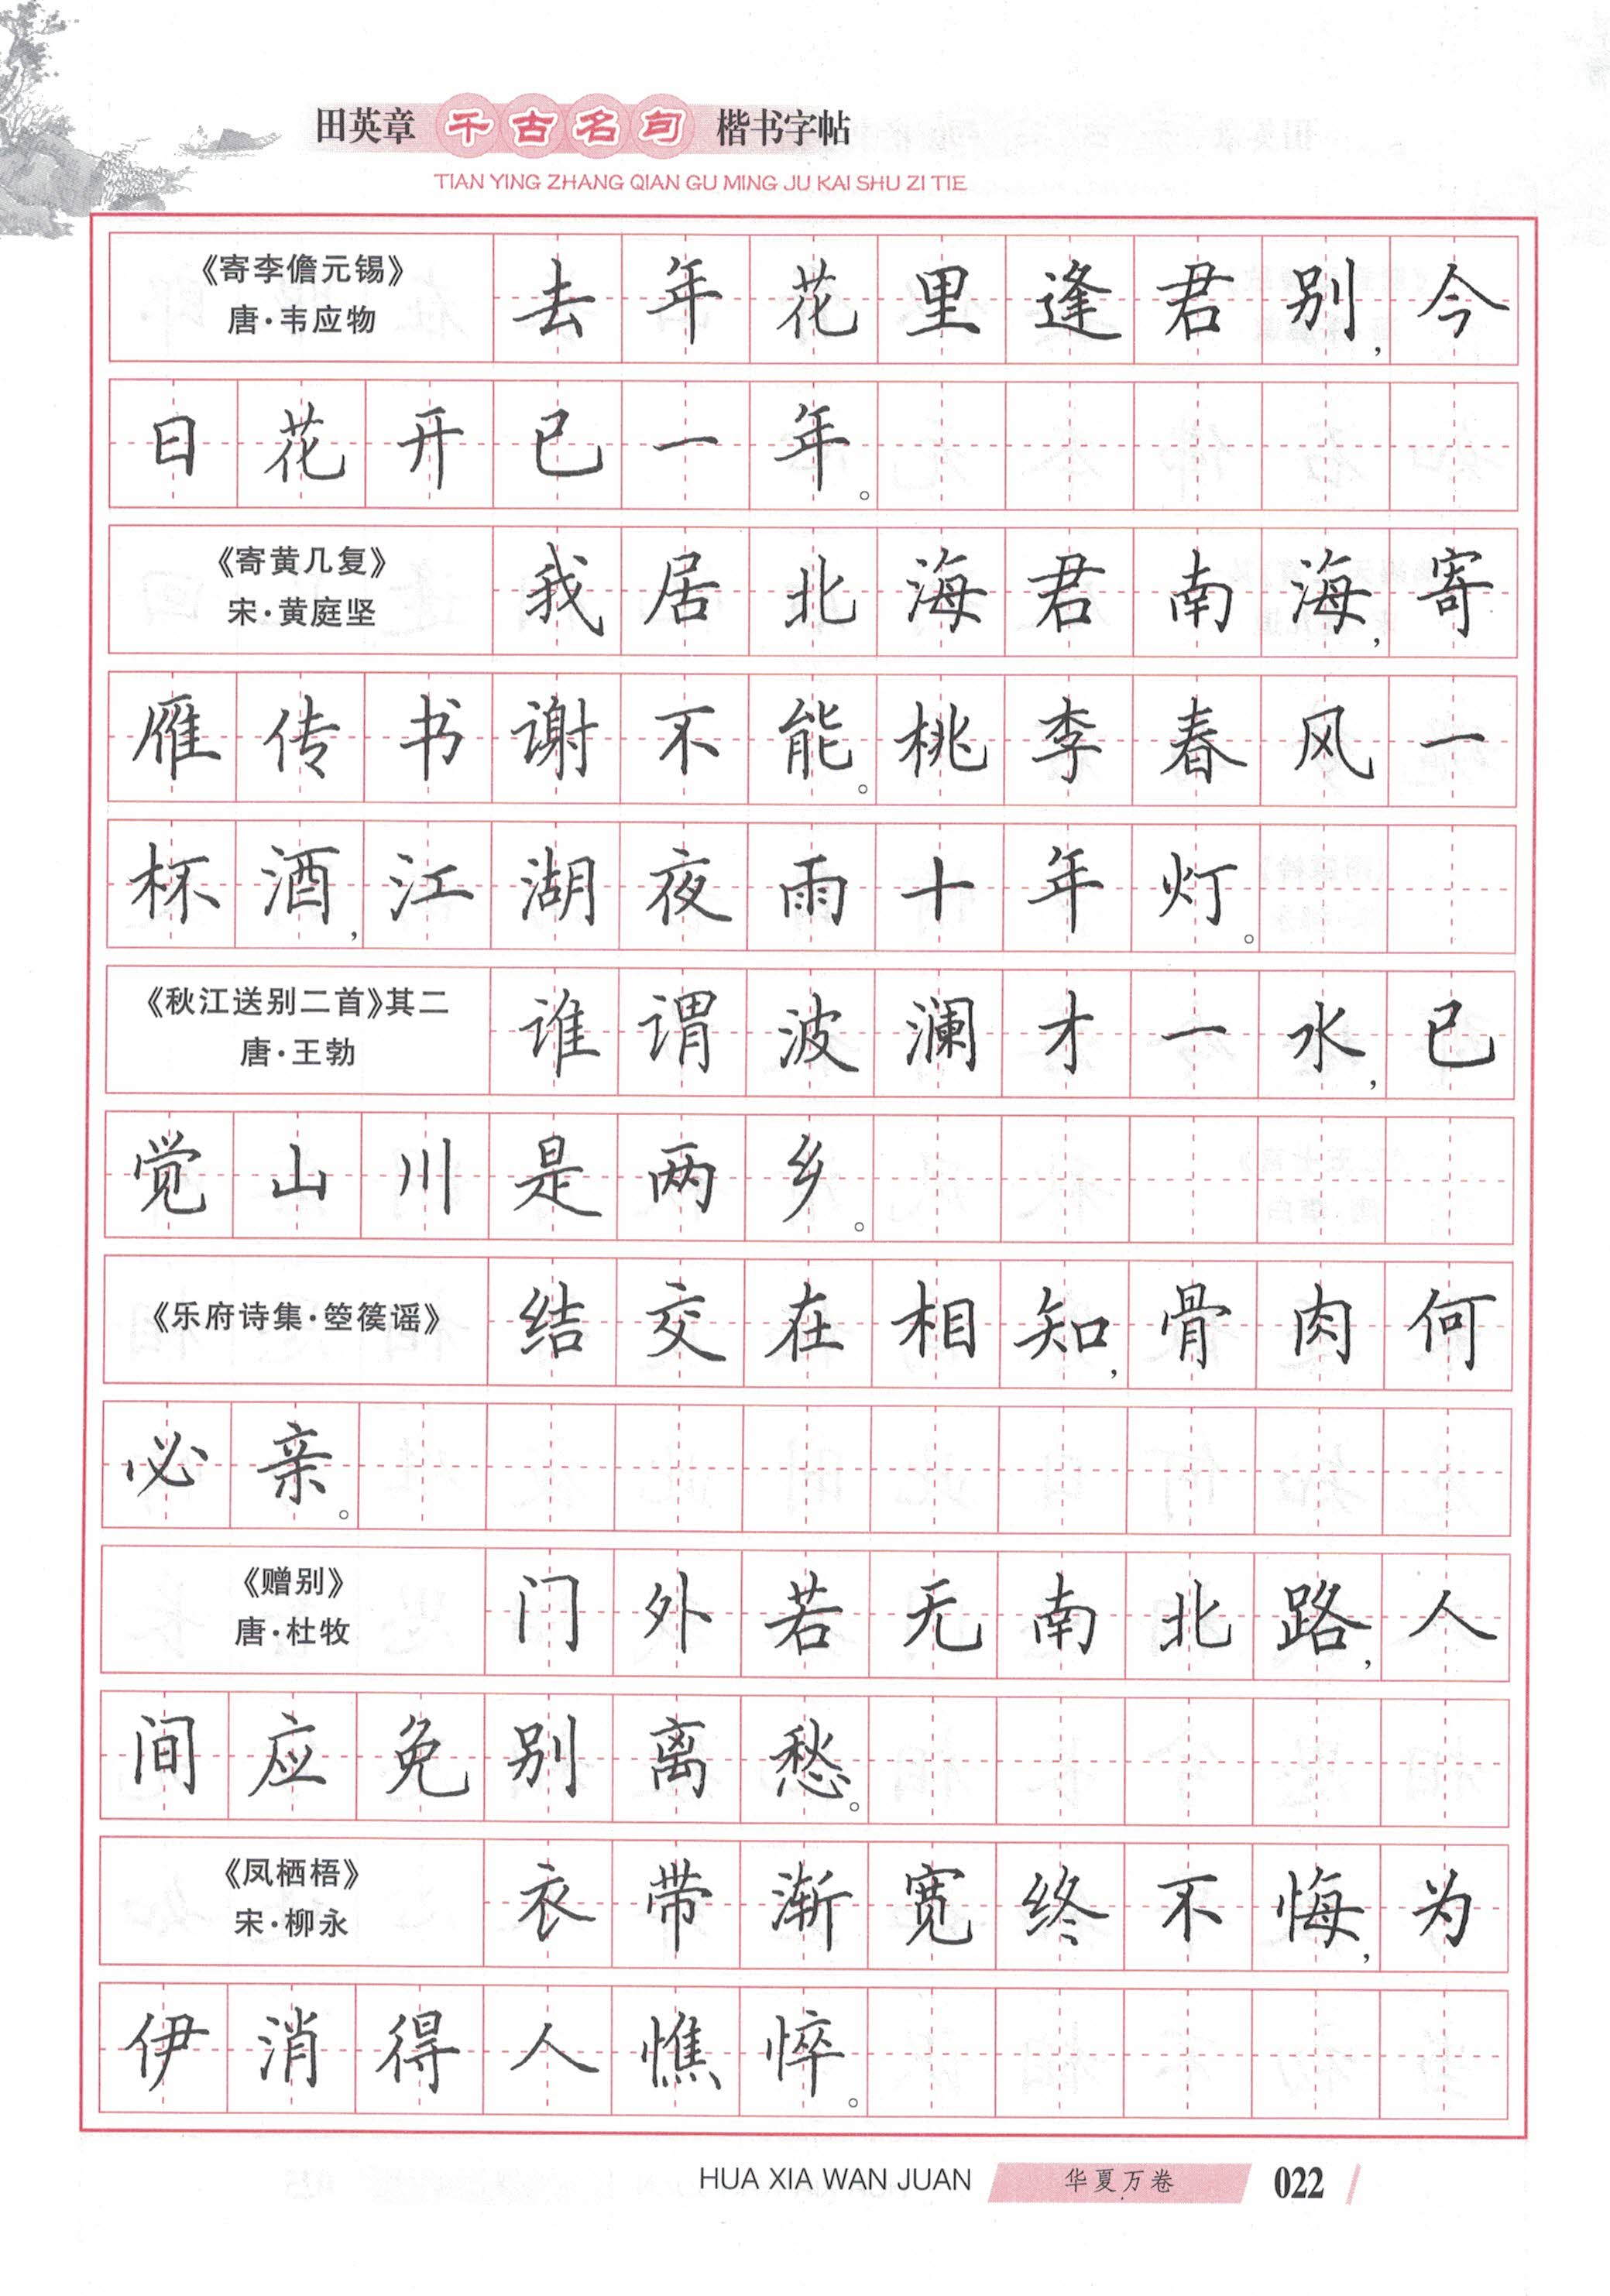 田英章 千古名句 楷书字帖
TIAN YING ZHANG QIAN GU MING JU KAI SHU ZI TIE
《寄李儋元锡》
唐·韦应物
去年花里逢君别,今
日花开已一年。
《寄黄几复》
宋·黄庭坚
我居北海君南海,寄
雁传书谢不能。桃李春风一
杯酒,江湖夜雨十年灯。
《秋江送别二首》其二
唐·王勃
谁谓波澜才一水,已
觉山川是两乡。
《乐府诗集·箜篌谣》
结交在相知,骨肉何
必亲。
《赠别》
唐·杜牧
门外若无南北路,人
间应免别离愁。
《凤栖梧》
宋·柳永
衣带渐宽终不悔,为
伊消得人憔悴。
HUA XIA WAN JUAN 华夏万卷 022